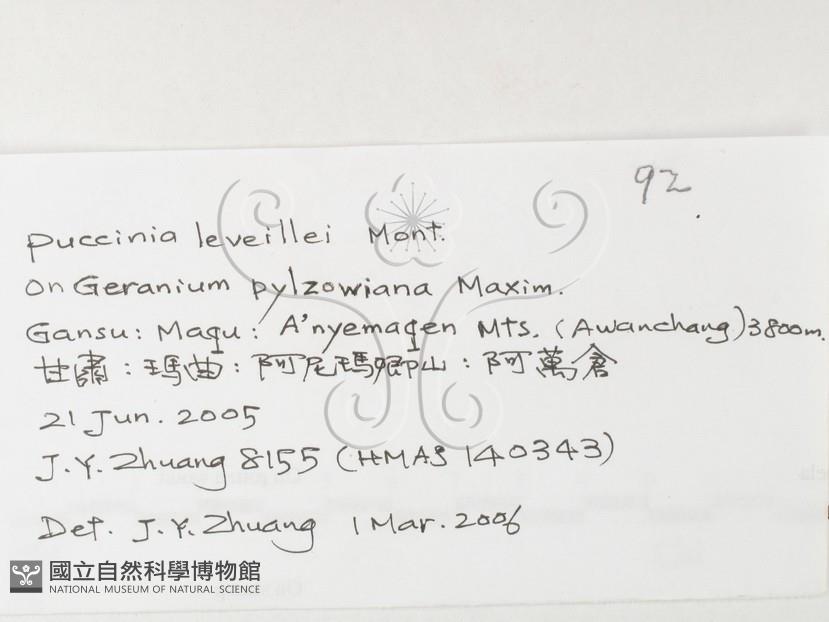 92
Puccinia leveillei Mont.
On Geranium pylzowiana Maxim.
Gansu: Maqu: A'nyemaqen Mts. (Awanchang) 3800m.
甘肅:瑪曲:阿尼瑪卿山:阿萬倉
21 Jun. 2005
J.Y. Zhuang 8155 (HMAS 140343)
Det. J.Y. Zhuang 1 Mar. 2006
國立自然科學博物館
NATIONAL MUSEUM OF NATURAL SCIENCE